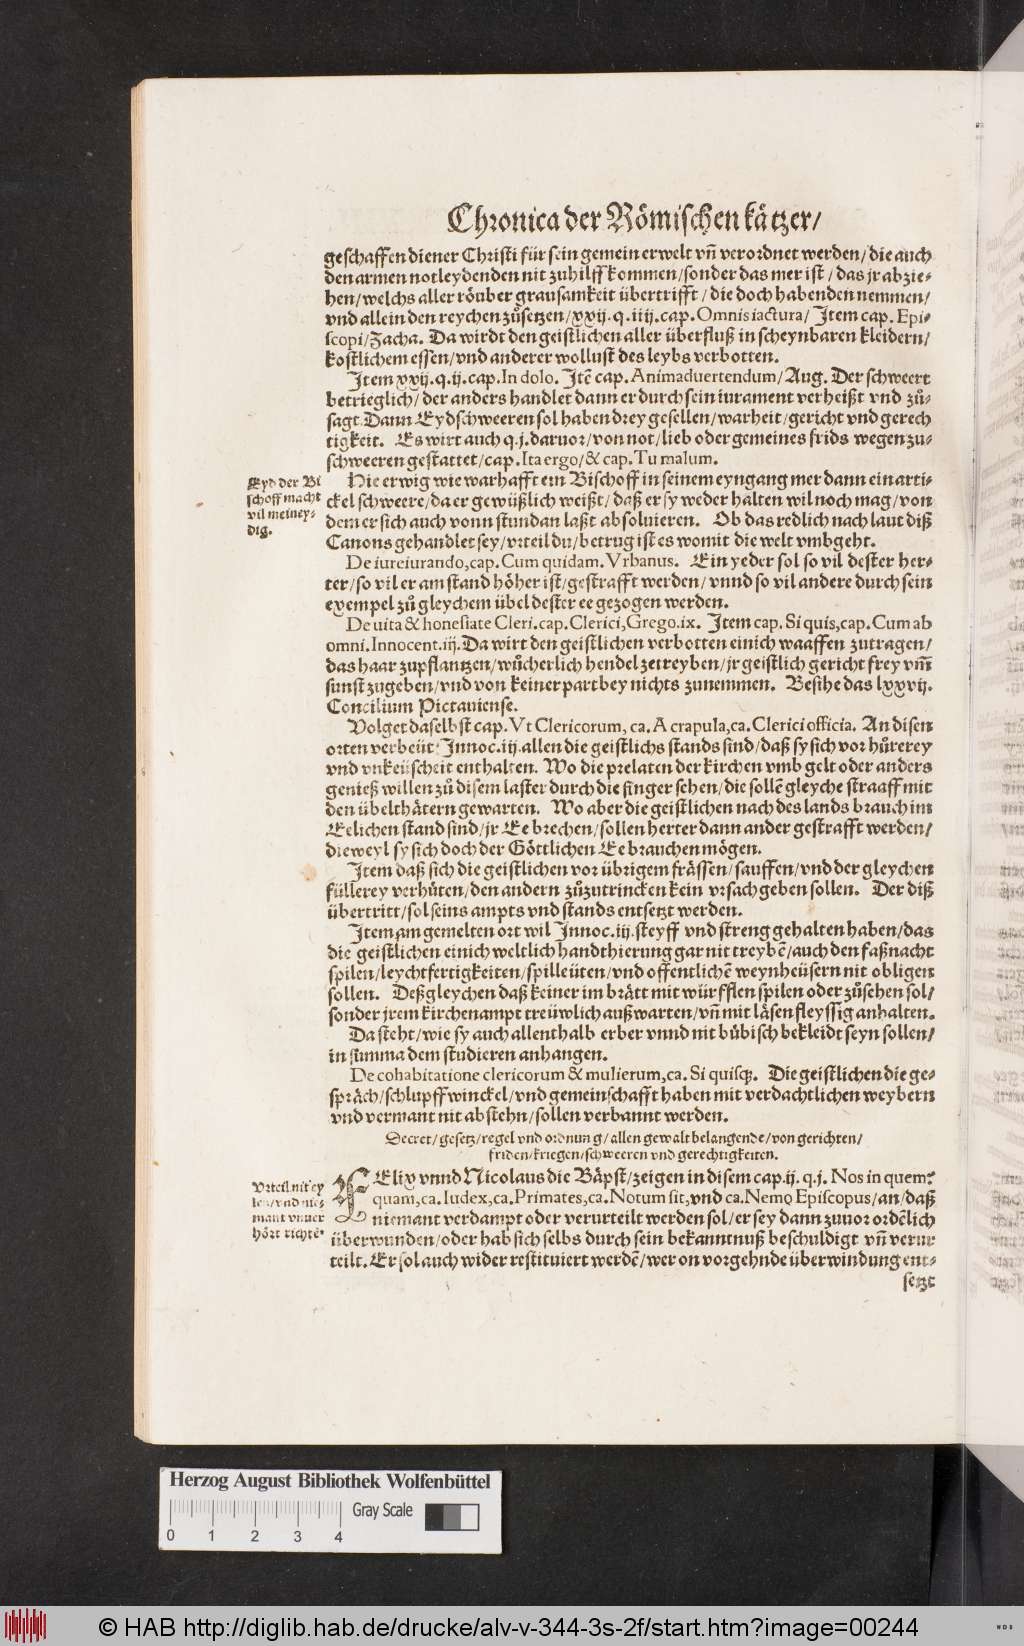 Chronica der Römischen kätzer/
geschaffen diener Christi für sein gemein erwelt vñ verordnet werden/die auch
den armen notleydenden nit zuhilff kommen/sonder das mer ist/das jr abzie⸗
hen/welchs aller röuber grausamkeit übertrifft/die doch habenden nemmen/
vnd allein den reychen zůsetzen/xxij.q.iiij.cap.Omnis iactura/ Item cap. Epi⸗
scopi/Zacha. Da wirdt den geistlichen aller überfluß in scheynbaren kleidern/
kostlichem essen/vnd anderer wollust des leybs verbotten.
Item xxij.q.ij.cap.In dolo. Itẽ cap.Animaduertendum/Aug. Der schweert
betrieglich/der anders handlet dann er durch sein iurament verheißt vnd zů⸗
sagt. Dann Eydschweeren sol haben drey gesellen/warheit/gericht vnd gerech
tigkeit. Es wirt auch q.j.daruor/von not/lieb oder gemeines frids wegen zu⸗
schweeren gestattet/cap.Ita ergo/& cap.Tu malum.
Eyd der Bi
schoff macht
vil meiney⸗
dig.
Hie erwig wie warhafft ein Bischoff in seinem eyngang mer dann ein arti⸗
ckel schweere/da er gewüßlich weißt/daß er sy weder halten wil noch mag/von
dem er sich auch vonn stundan laßt absoluieren. Ob das redlich nach laut diß
Canons gehandlet sey/vrteil du/betrug ist es womit die welt vmbgeht.
De iureiurando,cap.Cum quidam.Vrbanus. Ein yeder sol so vil dester her⸗
ter/so vil er am stand höher ist/gestrafft werden/vnnd so vil andere durch sein
exempel zů gleychem übel dester ee gezogen werden.
De uita & honestate Cleri.cap.Clerici,Grego.ix. Item cap.Si quis,cap.Cum ab
omni.Innocent.iij.Da wirt den geistlichen verbotten einich waaffen zutragen/
das haar zupflantzen/wůcherlich hendel zetreyben/jr geistlich gericht frey vm̃
sunst zugeben/vnd von keiner partbey nichts zunemmen. Besihe das lxxvij.
Concilium Pictauiense.
Volget daselbst cap.Vt Clericorum, ca.A crapula,ca.Clerici officia. An disen
orten verbeüt Innoc.iij.allen die geistlichs stands sind/daß sy sich vor hůrerey
vnd vnkeüscheit enthalten. Wo die prelaten der kirchen vmb gelt oder anders
genieß willen zů disem laster durch die finger sehen/die sollẽ gleyche straaff mit
den übelthätern gewarten. Wo aber die geistlichen nach des lands brauch im
Eelichen stand sind/jr Ee brechen/sollen herter dann ander gestrafft werden/
dieweyl sy sich doch der Göttlichen Ee brauchen mögen.
Item daß sich die geistlichen vor übrigem frässen/sauffen/vnd der gleychen
füllerey verhůten/den andern zůzutrincken kein vrsach geben sollen. Der diß
übertritt/sol seins ampts vnd stands entsetzt werden.
Item am gemelten ort wil Innoc.iij.steyff vnd streng gehalten haben/das
die geistlichen einich weltlich handthierung gar nit treybẽ/auch den faßnacht
spilen/leychtfertigkeiten/spilleüten/vnd offentlichẽ weynheüsern nit obligen
sollen. Deßgleychen daß keiner im brätt mit würfflen spilen oder zůsehen sol/
sonder jrem kirchenampt treüwlich außwarten/vñ mit läsen fleyssig anhalten.
Da steht/wie sy auch allenthalb erber vnnd nit bůbisch bekleidt seyn sollen/
in summa dem studieren anhangen.
De cohabitatione clericorum & mulierum,ca.Si quisq;. Die geistlichen die ge⸗
spräch/schlupffwinckel/vnd gemeinschafft haben mit verdachtlichen weybern
vnd vermant nit abstehn/sollen verbannt werden.
Decret/gesetz/regel vnd ordnung/allen gewalt belangende/von gerichten/
friden/kriegen/schweeren vnd gerechtigkeiten.
Vrteil nit ey
len/vnd nie⸗
mant vnuer
hört richtẽ.
FElix vnnd Nicolaus die Bäpst/zeigen in disem cap.ij.q.j. Nos in quem⸗
quam,ca.Iudex,ca.Primates,ca.Notum sit,vnd ca.Nemo Episcopus/an/daß
niemant verdampt oder verurteilt werden sol/er sey dann zuuor ordẽlich
überwunden/oder hab sich selbs durch sein bekanntnuß beschuldigt vñ verur
teilt. Er sol auch wider restituiert werdẽ/wer on vorgehnde überwindung ent⸗
setzt
Herzog August Bibliothek Wolfenbüttel
Gray Scale
0 1 2 3 4
© HAB http://diglib.hab.de/drucke/alv-v-344-3s-2f/start.htm?image=00244